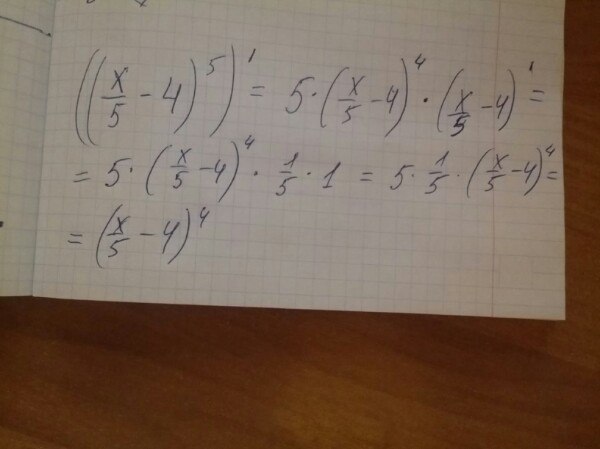 ((x/5 - 4)^5)' = 5·(x/5 - 4)^4·(x/5 - 4)' =
= 5·(x/5 - 4)^4·1/5·1 = 5·1/5·(x/5 - 4)^4 =
= (x/5 - 4)^4